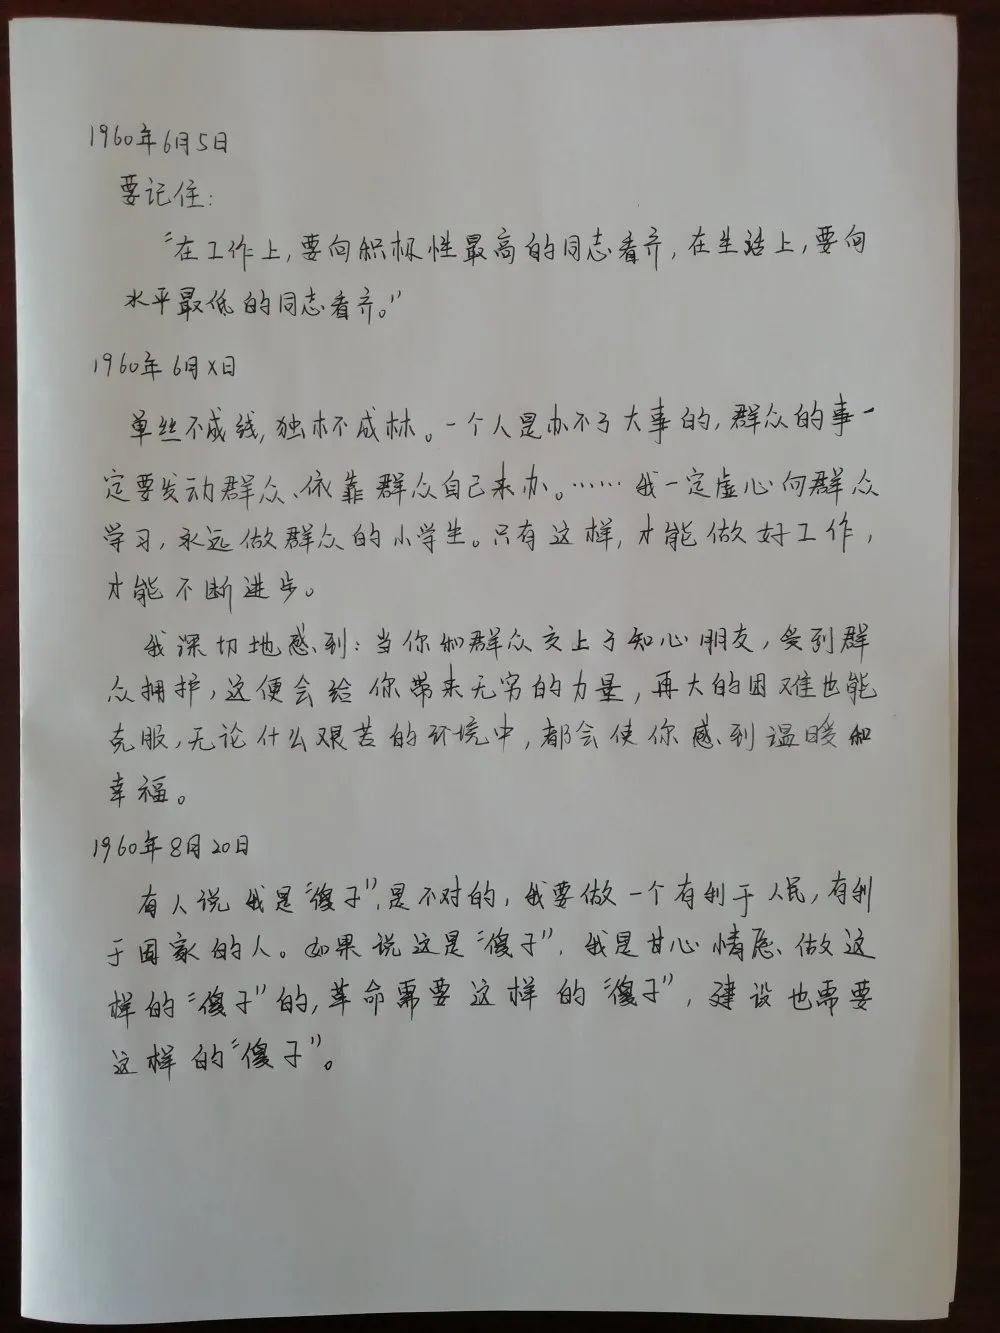 1960年6月5日
要记住：
“在工作上，要向积极性最高的同志看齐，在生活上，要向
水平最低的同志看齐。”
1960年6月X日
单丝不成线，独木不成林。一个人是办不了大事的，群众的事一
定要发动群众、依靠群众自己来办。……我一定虚心向群众
学习，永远做群众的小学生。只有这样，才能做好工作，
才能不断进步。
我深切地感到：当你和群众交上了知心朋友，受到群
众拥护，这便会给你带来无穷的力量，再大的困难也能
克服，无论什么艰苦的环境中，都会使你感到温暖和
幸福。
1960年8月20日
有人说我是“傻子”，是不对的，我要做一个有利于人民，有利
于国家的人。如果说这是“傻子”，我是甘心情愿做这
样的“傻子”的，革命需要这样的“傻子”，建设也需要
这样的“傻子”。